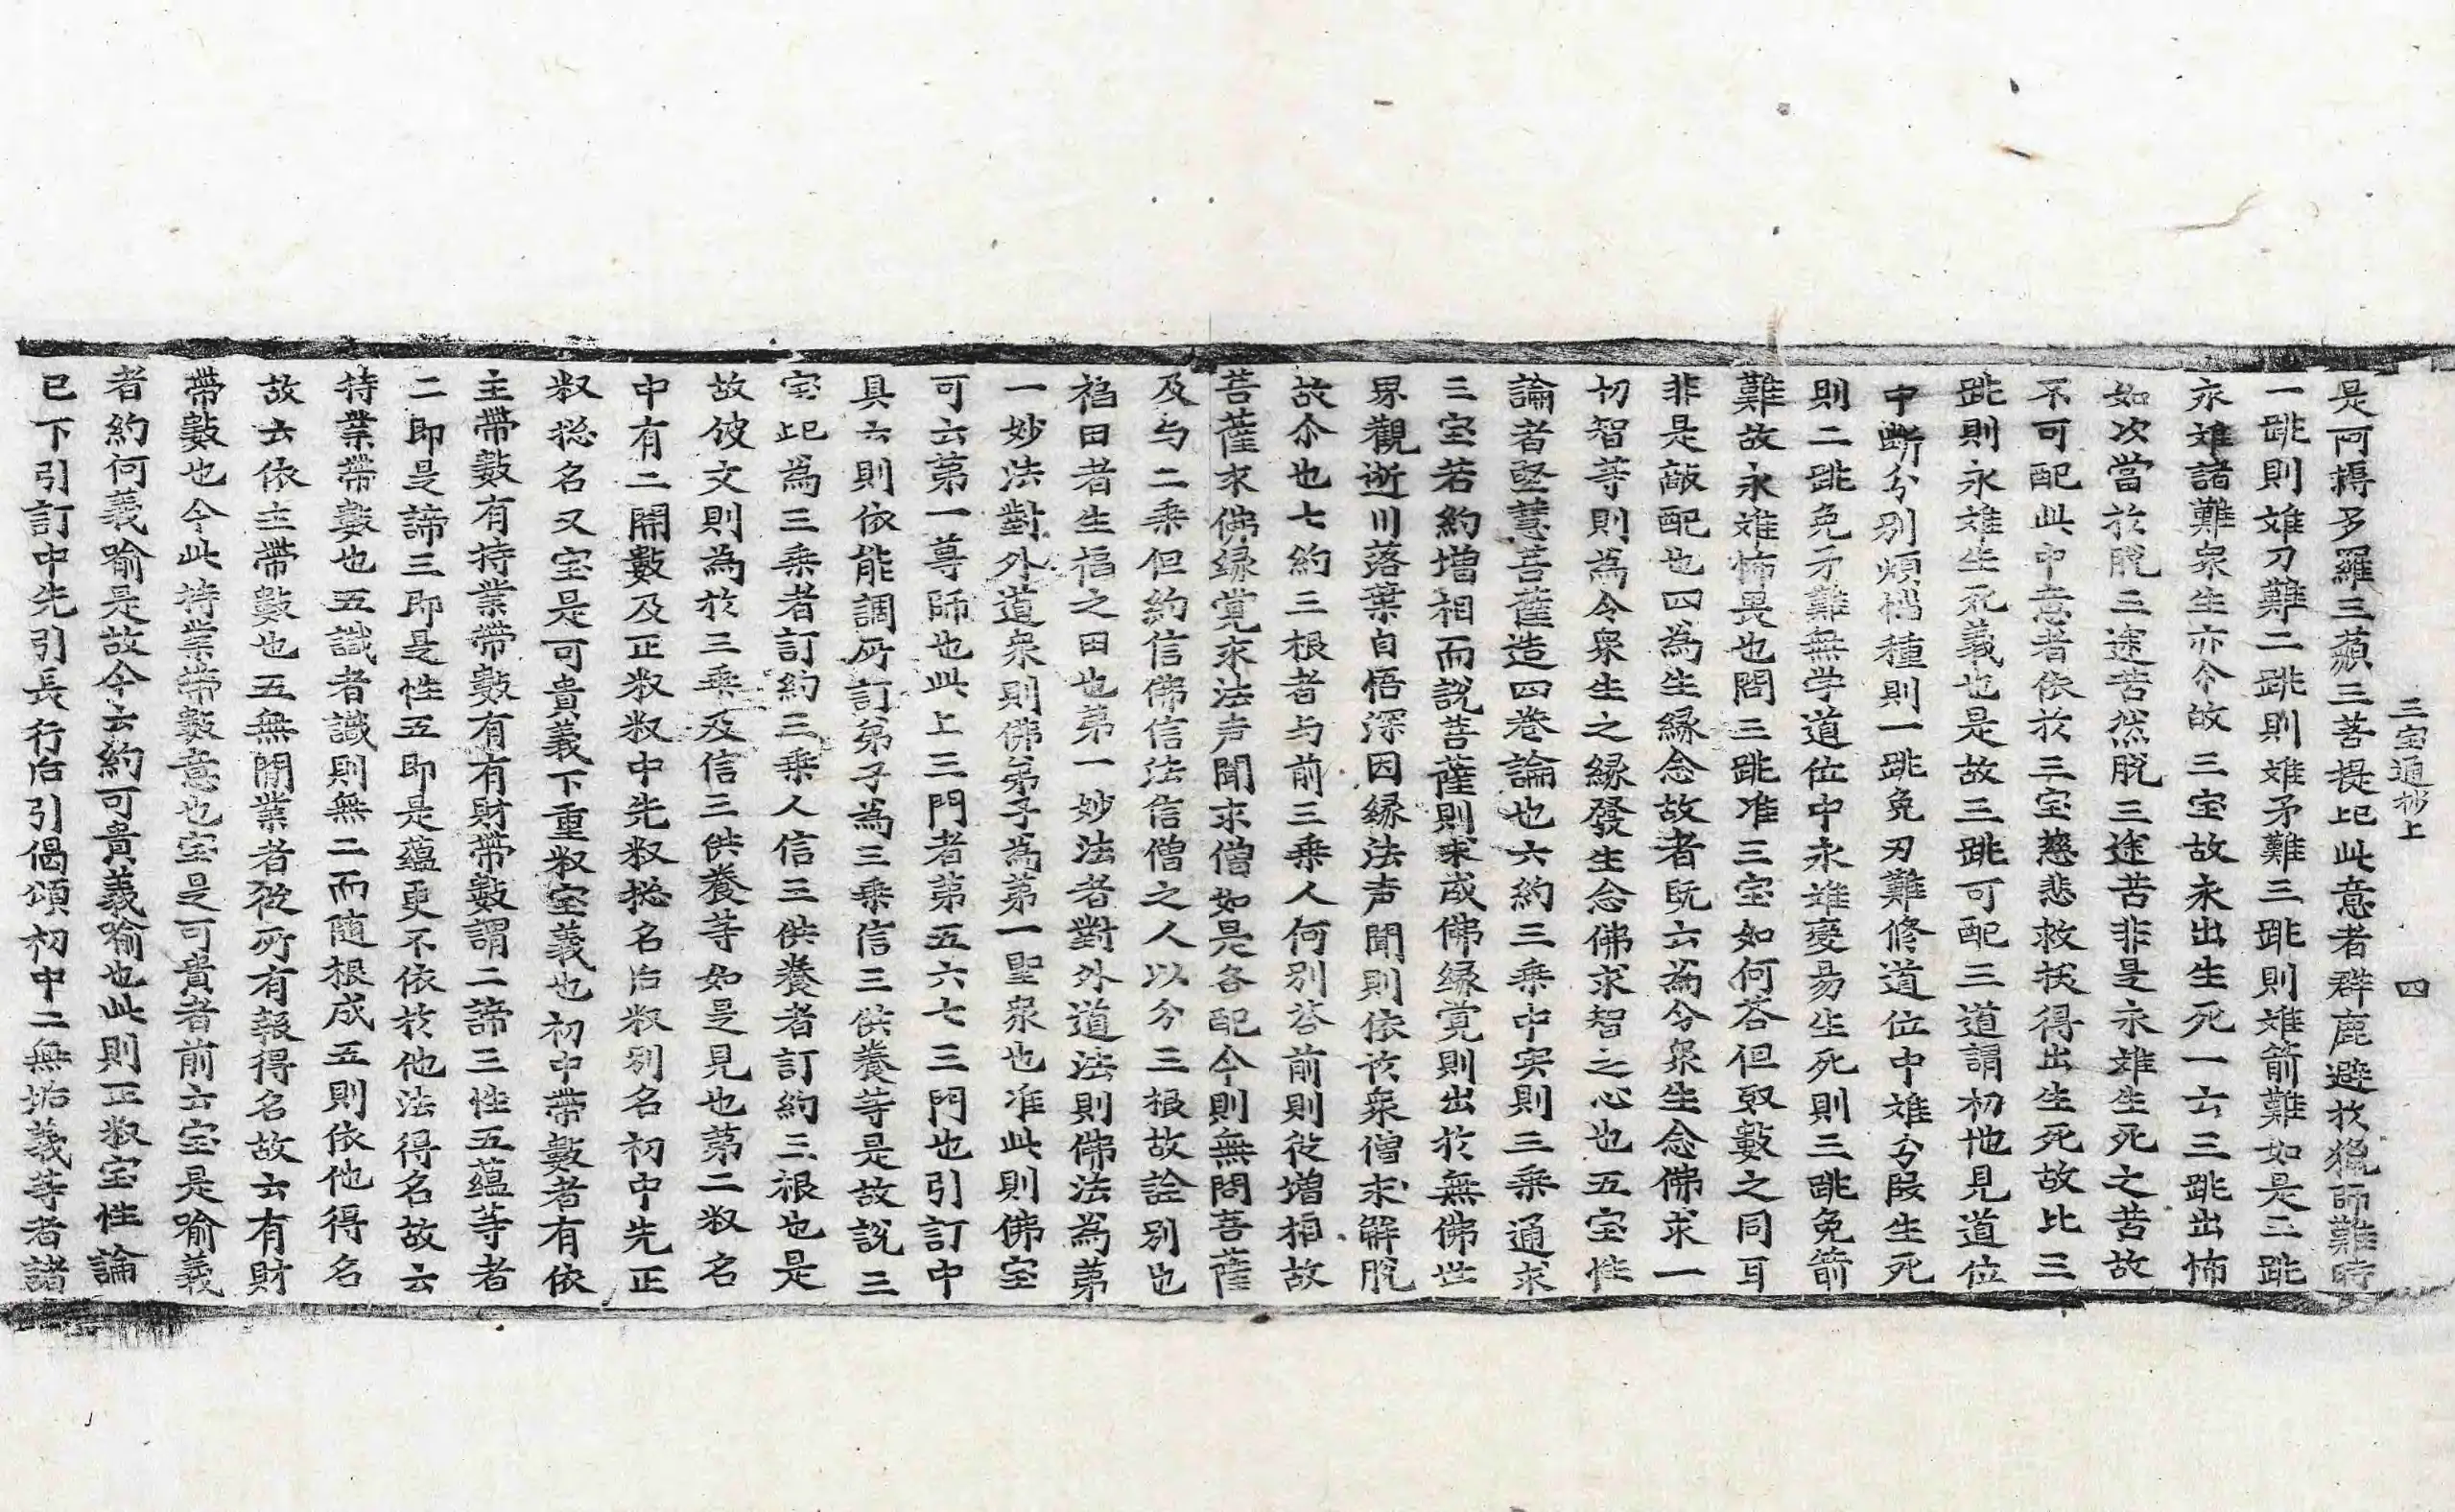 三宝通抄上　四
是阿耨多羅三藐三菩提記此意者群鹿避於獵師難時
一跳則难刀難二跳則难矛難三跳則难箭難如是二跳
永难諸難衆生亦尒故三宝故永出生死一云三跳出怖
如次當於脫三途苦然脫三途苦非是永难生死之苦故
不可配此中意者依於三宝慈悲救拔得出生死故比三
跳則永难生死義也是故三跳可配三道謂初地見道位
中斷分別煩惱種則一跳免刃難修道位中难分段生死
則二跳免矛難無学道位中永难變易生死則三跳免箭
難故永难怖畏也問三跳准三宝如何荅但取數之同耳
非是敵配也四為生縁念故者既云為令衆生念佛求一
切智等則為令衆生之縁發生念佛求智之心也五宝性
論者堅慧菩薩造四巻論也六約三乘中实則三乘通求
三宝若約增相而說菩薩則求成佛縁覺則出於無佛世
界觀逝川落葉自悟深因縁法声聞則依於衆僧求解脫
故尒也七約三根者与前三乘人何別荅前則從增相故
菩薩求佛縁覚求法声聞求僧如是各配今則無問菩薩
及与二乘但約信佛信法信僧之人以分三根故詮別也
福田者生福之田也第一妙法者對外道法則佛法為第
一妙法對外道衆則佛弟子為第一聖衆也准此則佛宝
可云第一尊師也此上三門者第五六七三門也引訂中
具云則依能調所訂弟子為三乘信三供養等是故說三
宝記為三乘者訂約三乘人信三供養者訂約三根也是
故彼文則為於三乘及信三供養等如是見也第二叙名
中有二開數及正叙叙中先叙捴名后叙別名初中先正
叙捴名又宝是可貴義下重叙宝義也初中帶數者有依
主帶數有持業帶數有有財帶數謂二諦三性五蘊等者
二即是諦三即是性五即是蘊更不依於他法得名故云
持業帶數也五識者識則無二而随根成五則依他得名
故云依主帶數也五無間業者從所有報得名故云有財
帶數也今此持業帶數意也宝是可貴者前云宝是喻義
者約何義喻是故今云約可貴義喻也此則正叙宝性論
已下引訂中先引長行后引偈頌初中二無垢義等者諸